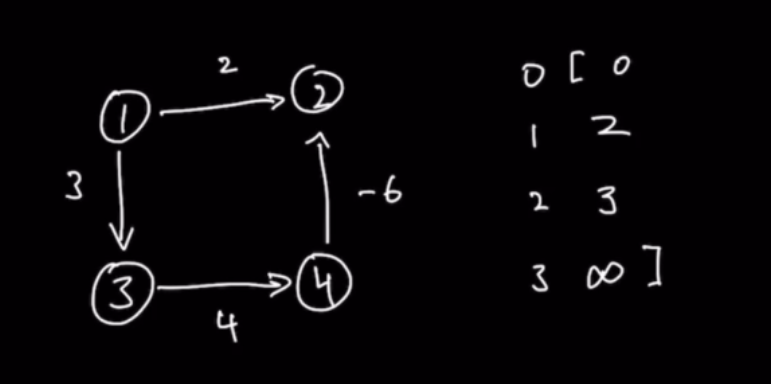 2
1
2
3
-6
3
4
4
0 [ 0
1 2
2 3
3 ∞ ]